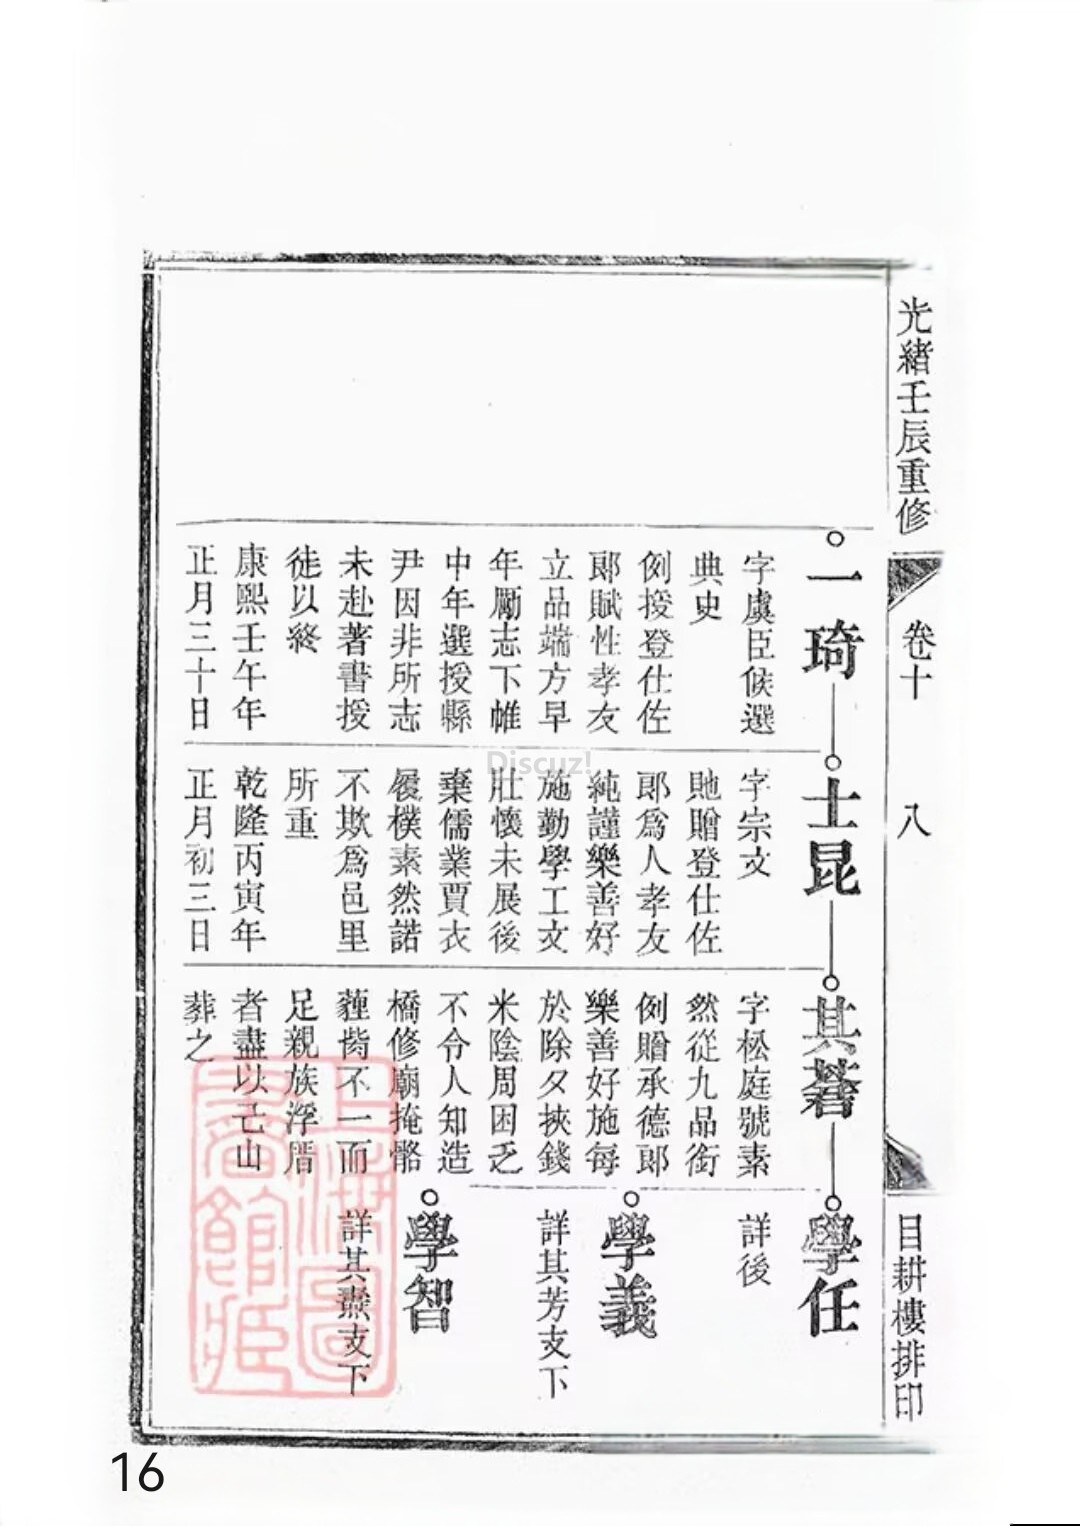 光緒壬辰重修
卷十
八
目耕樓排印
一琦
字虞臣候選
典史
例授登仕佐
郎賦性孝友
立品端方早
年勵志下帷
中年選授縣
尹因非所志
未赴著書授
徒以終
康熙壬午年
正月三十日
士昆
字宗文
貤贈登仕佐
郎爲人孝友
純謹樂善好
施勤學工文
壯懷未展後
棄儒業賈衣
履樸素然諾
不欺爲邑里
所重
乾隆丙寅年
正月初三日
其
字松庭號素
然從九品銜
例贈承德郎
樂善好施每
於除夕挾錢
米陰周困乏
不令人知造
橋修廟掩骼
薶胔不一而
足親族浮厝
者盡以己山
葬之
學任
詳後
學義
詳其芳支下
學智
詳其燾支下
上海圖書館藏
Discuz!
16